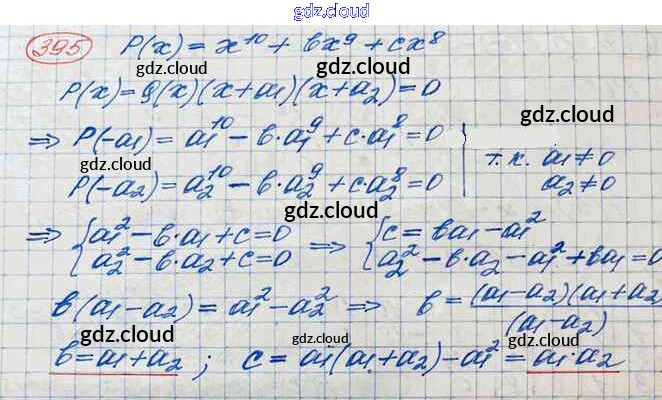 gdz.cloud
395 P(x) = x^10 + bx^9 + cx^8
gdz.cloud gdz.cloud
P(x) = Q(x)(x+a₁)(x+a₂) = 0
gdz.cloud
⇒ P(-a₁) = a₁^10 - b·a₁^9 + c·a₁^8 = 0
gdz.cloud
т.к. a₁ ≠ 0
P(-a₂) = a₂^10 - b·a₂^9 + c·a₂^8 = 0
a₂ ≠ 0
gdz.cloud
⇒ { a₁² - b·a₁ + c = 0 ⇒ { c = ba₁ - a₁²
a₂² - b·a₂ + c = 0 a₂² - b·a₂ - a₁² + ba₁ = 0
gdz.cloud gdz.cloud
b(a₁ - a₂) = a₁² - a₂² ⇒ b = (a₁-a₂)(a₁+a₂)
(a₁-a₂)
gdz.cloud gdz.cloud gdz.cloud
b = a₁ + a₂ ; c = a₁(a₁+a₂) - a₁² = a₁·a₂